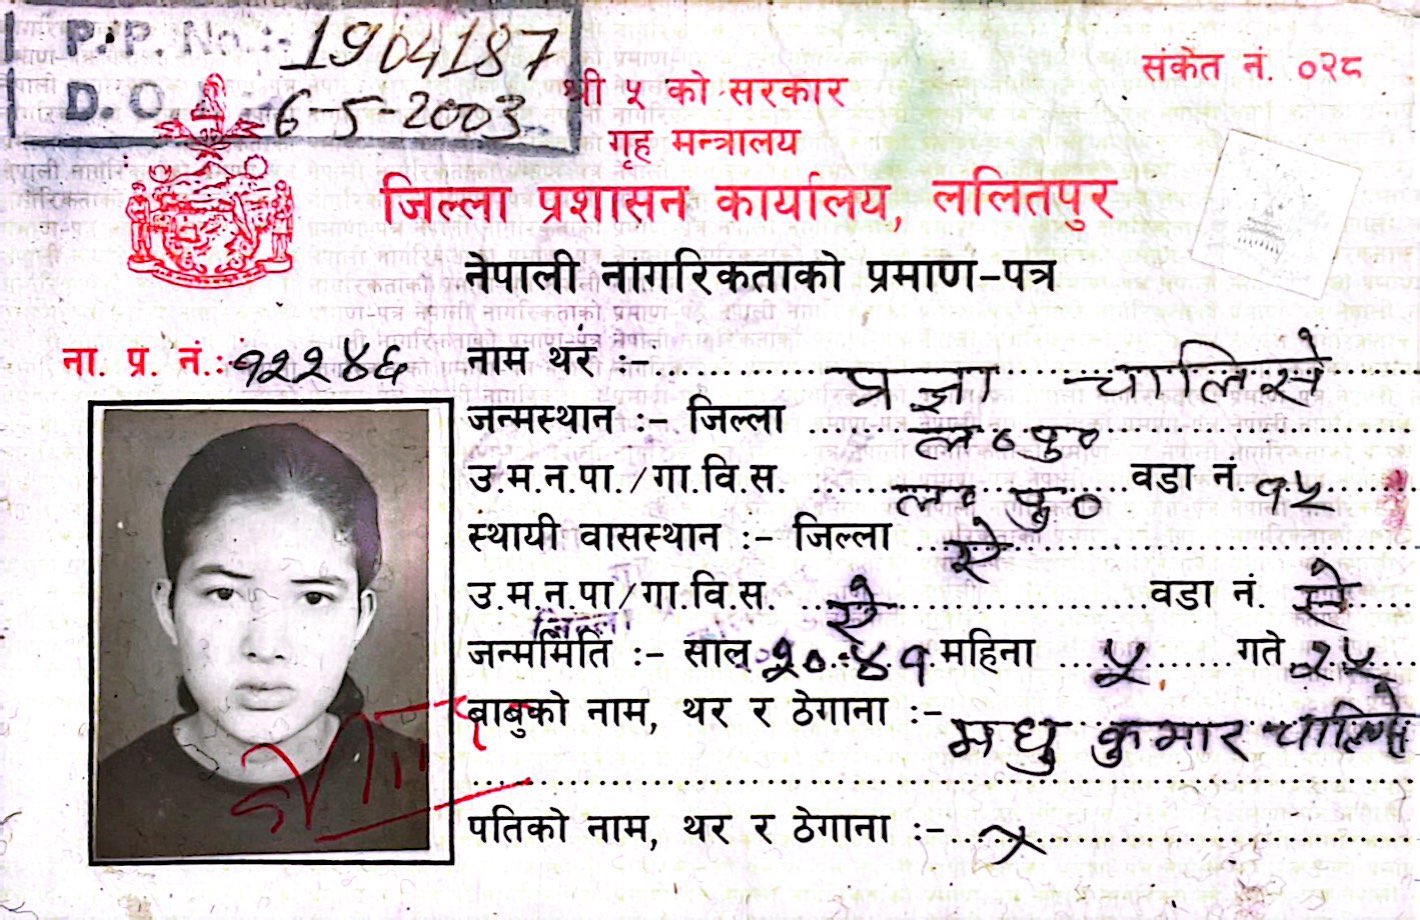 P.P. No.: 1904187
D.O. 6-5-2003
संकेत नं. ०२८
श्री ५ को सरकार
गृह मन्त्रालय
जिल्ला प्रशासन कार्यालय, ललितपुर
नेपाली नागरिकताको प्रमाण-पत्र
ना. प्र. नं.: १२२४६
नाम थर :- प्रज्ञा चालिसे
जन्मस्थान :- जिल्ला ल०पु०
उ.म.न.पा./गा.वि.स. ल०पु० वडा नं. १५
स्थायी वासस्थान :- जिल्ला ऐ
उ.म.न.पा/गा.वि.स. ऐ वडा नं. ऐ
जन्ममिति :- साल २०४१ महिना ५ गते २५
बाबुको नाम, थर र ठेगाना :- मधु कुमार चालिसे
पतिको नाम, थर र ठेगाना :- ×